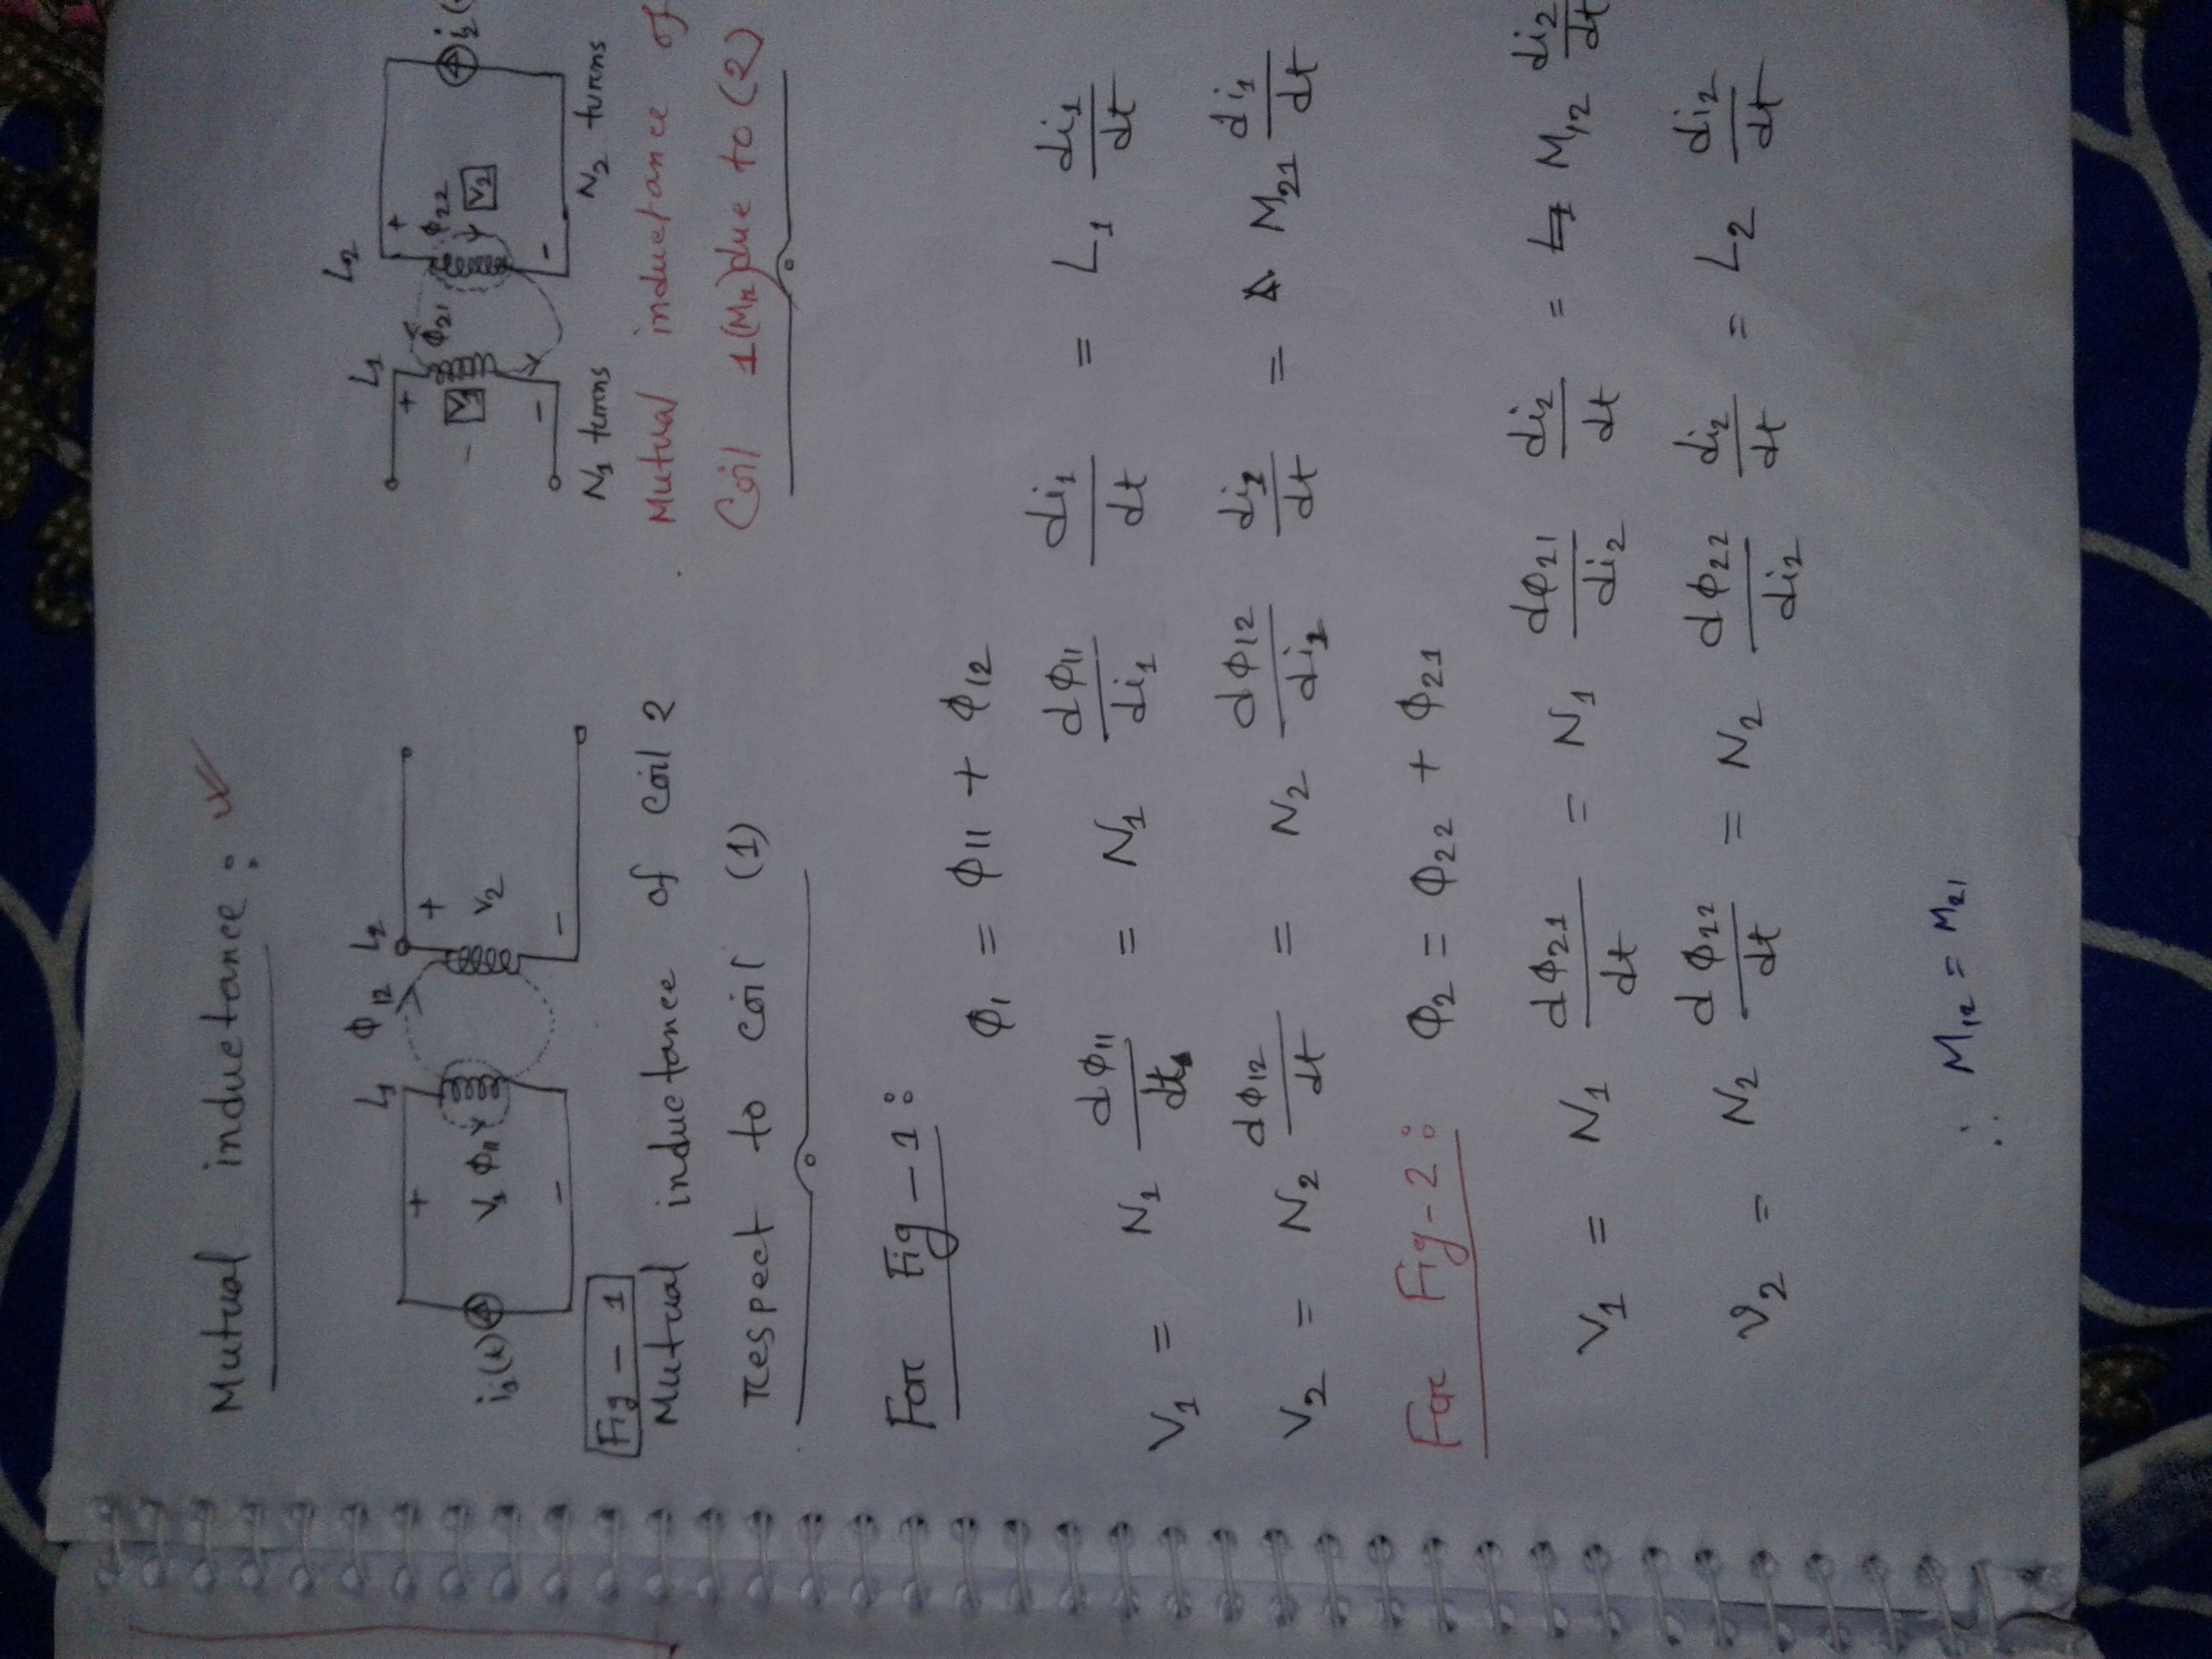 Mutual inductance :
L1 Φ12 L2
i1(t) + V1 Φ11 - + V2 -
Fig - 1
Mutual inductance of coil 2
respect to coil (1)
L1 L2
+ - V1 Φ21 Φ22 + V2 i2( - -
N1 turns N2 turns
Mutual inductance of
Coil 1 (M12) due to (2)
For Fig - 1 :
Φ1 = Φ11 + Φ12
V1 = N1 dΦ11/dt = N1 dΦ11/di1 di1/dt = L1 di1/dt
V2 = N2 dΦ12/dt = N2 dΦ12/di1 di1/dt = M21 di1/dt
For Fig-2 : Φ2 = Φ22 + Φ21
V1 = N1 dΦ21/dt = N1 dΦ21/di2 di2/dt = M12 di2/dt
V2 = N2 dΦ22/dt = N2 dΦ22/di2 di2/dt = L2 di2/dt
∴ M12 = M21